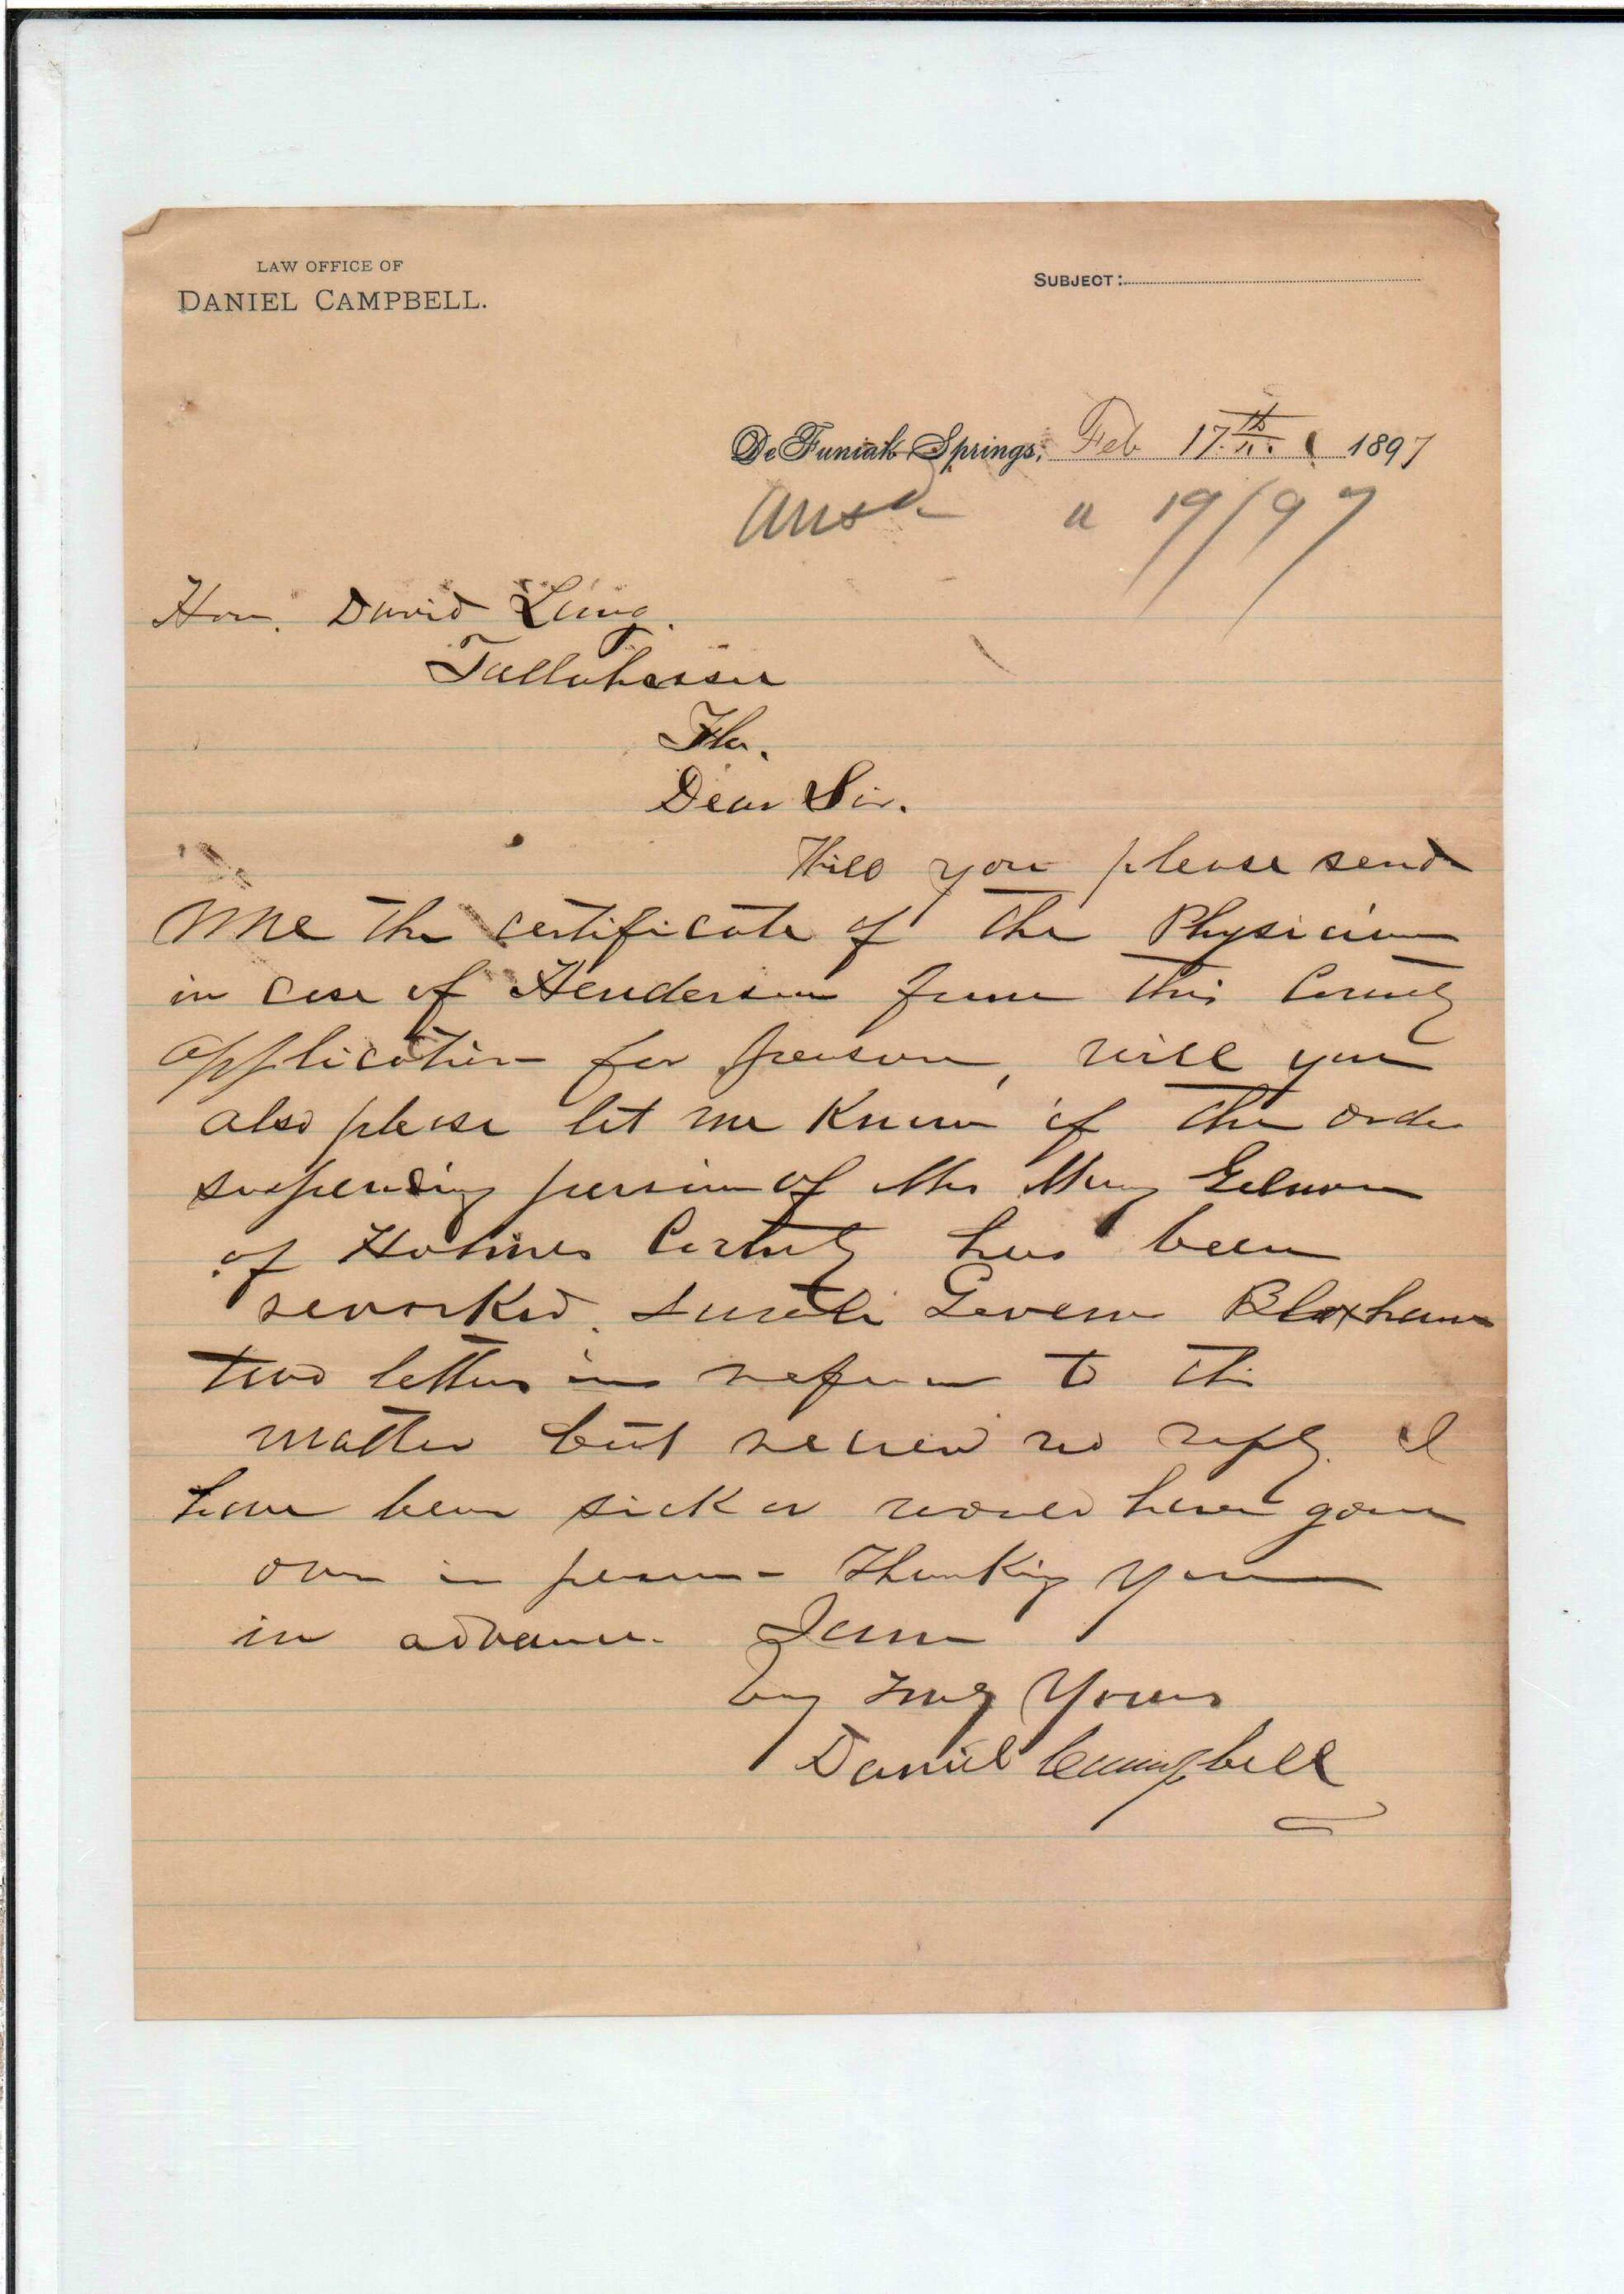 LAW OFFICE OF
DANIEL CAMPBELL.
SUBJECT:
De Funiak Springs, Feb 17th 1897
Ansd " 19/97
Hon. David Lang.
Tallahassee
Fla.
Dear Sir.
Will you please send
me the certificate of the Physician
in case of Henderson from this County
application for pension, will you
also please let me know if the order
suspending pension of Mrs Mary
of Holmes County has been
revorked. Governor Bloxham
two letters in to this
matter but received no reply. I
have been sick or would have gone
over in person - Thanking you
in advance. I am
Very Truly Yours
Daniel Campbell